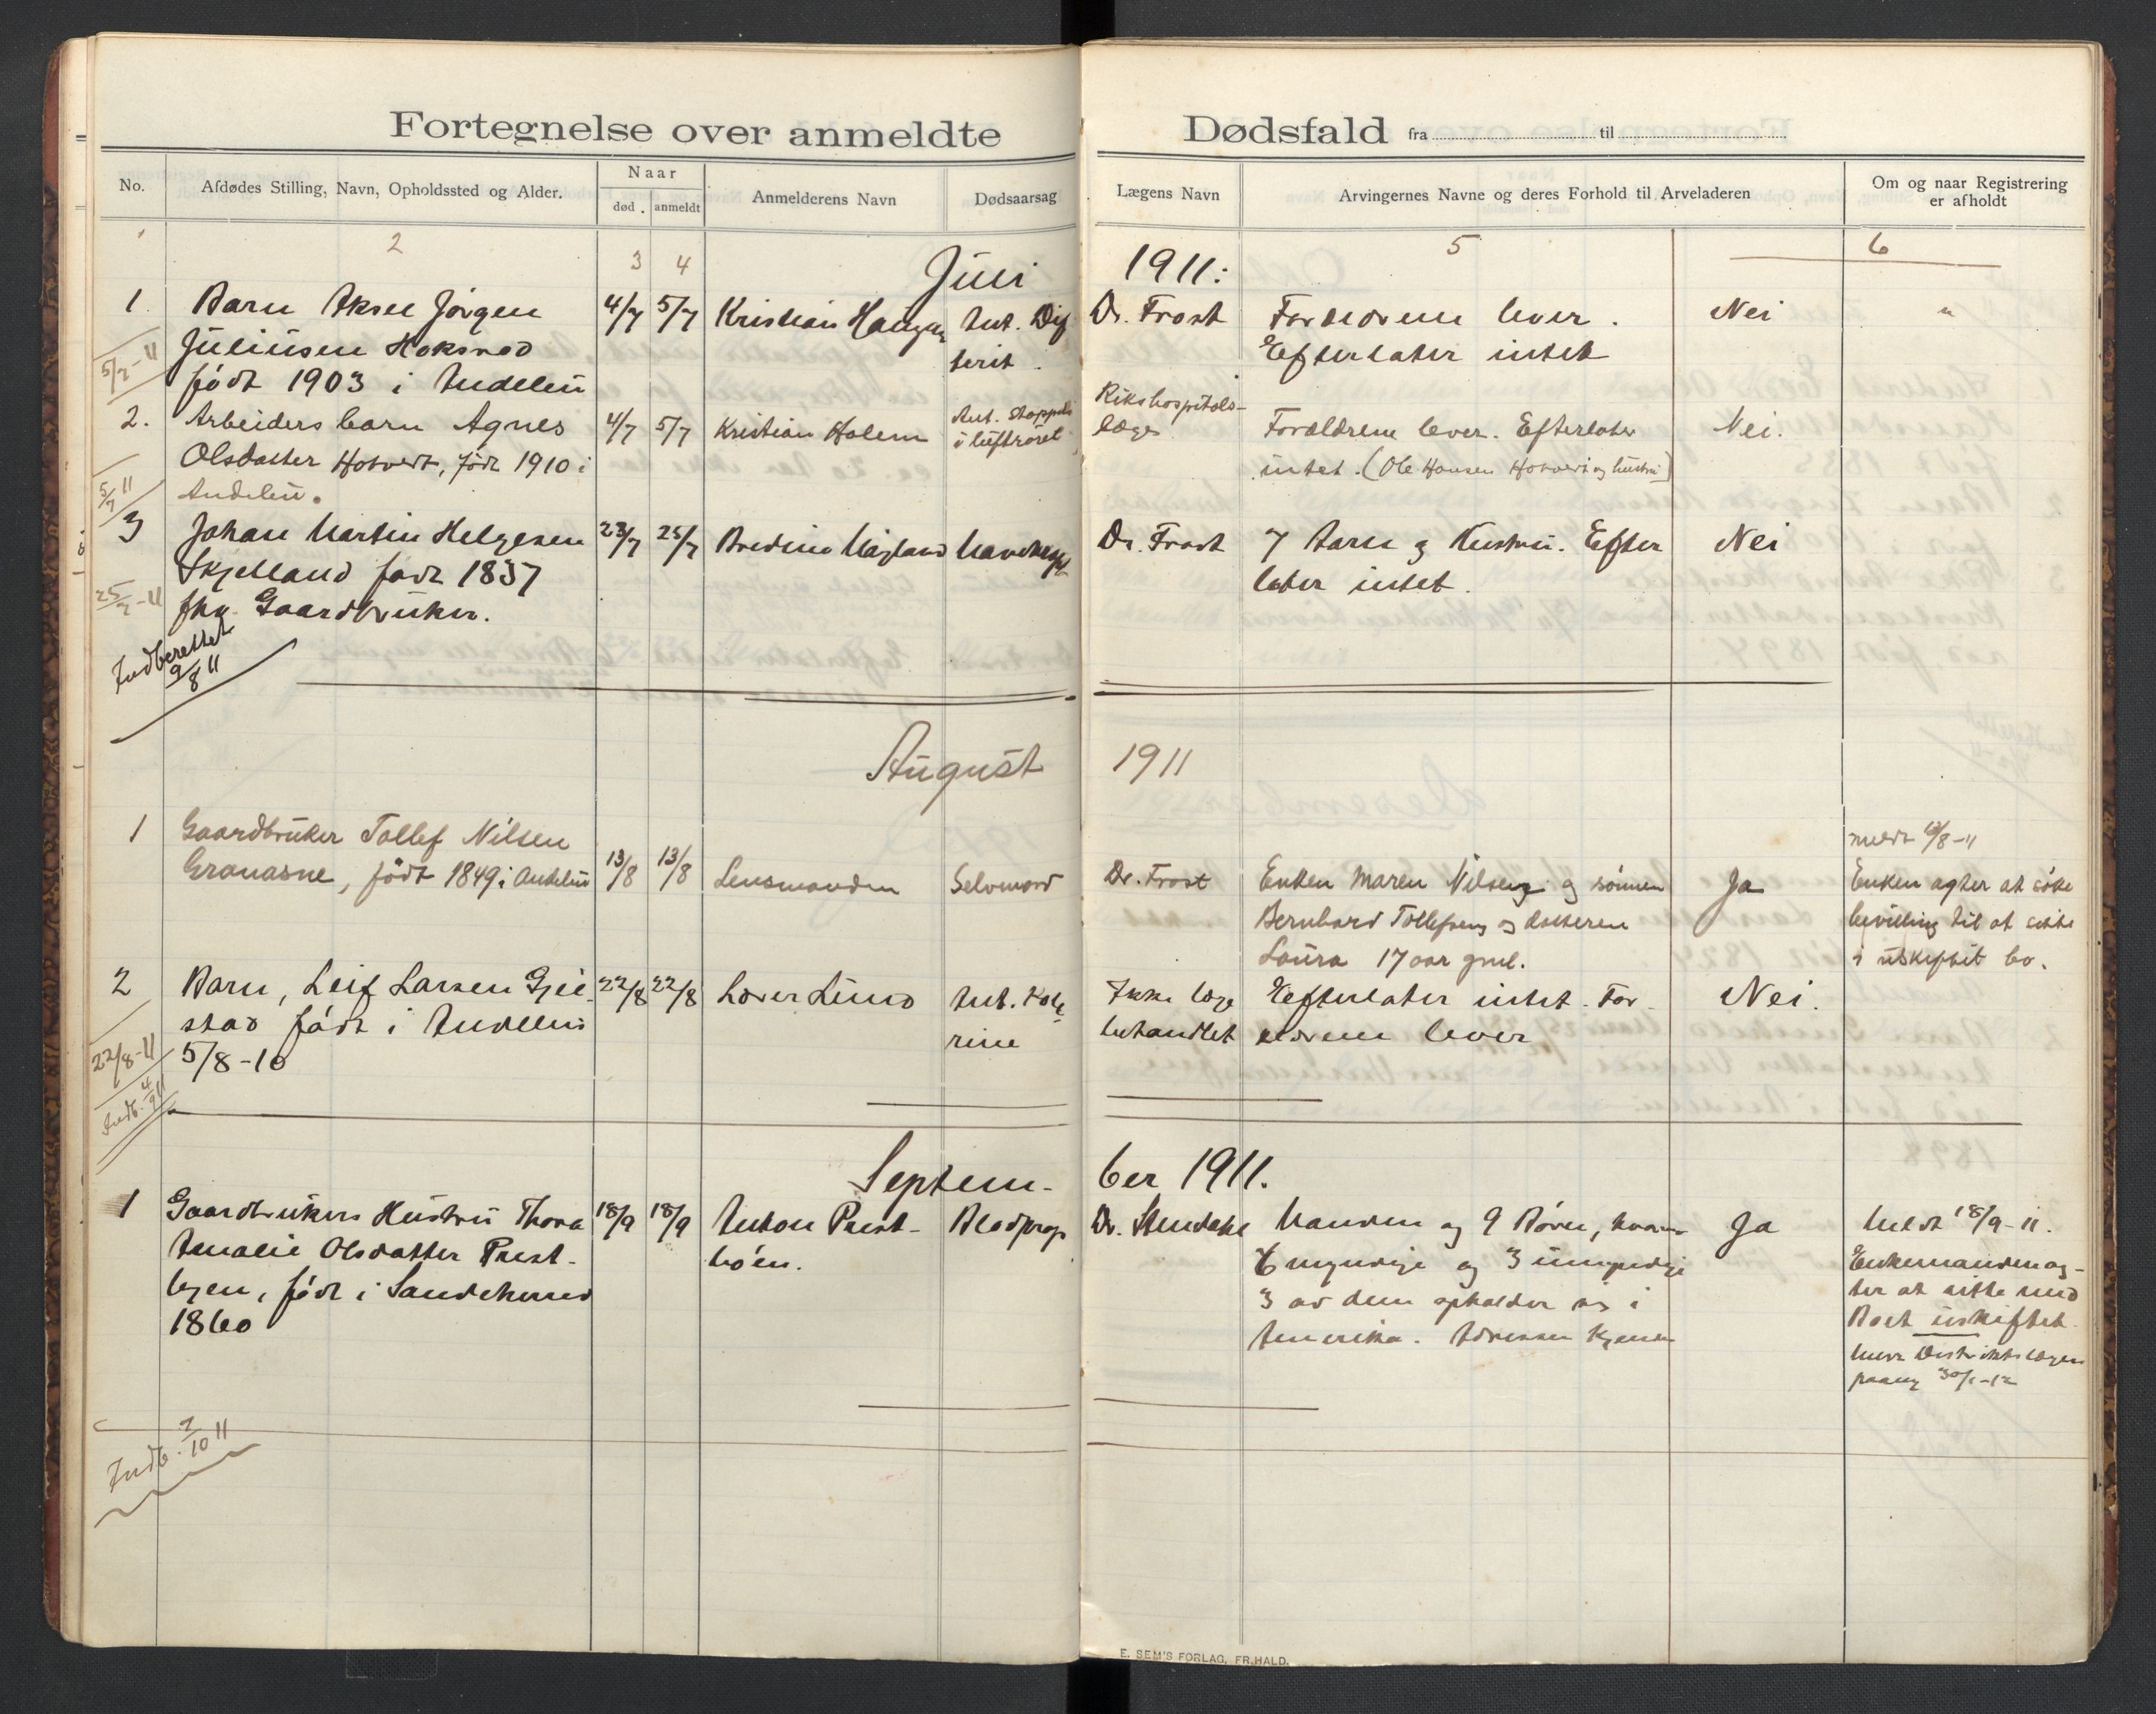 Fortegnelse over anmeldte Dødsfald fra til
No.
Afdødes Stilling, Navn, Opholdssted og Alder.
Naar
død. anmeldt
Anmelderens Navn
Dødsaarsag
Lægens Navn
Arvingernes Navne og deres Forhold til Arveladeren
Om og naar Registrering
er afholdt
2 3 4 5 6
Juli 1911:
1
5/7-11
Barn Aksel Jørgen
Juliusen
født 1903 i Andebu
4/7 5/7
Kristian
Ant. Dif
terit.
Dr. Frost
Forældrene lever.
Efterlater intet
Nei
"
2.
5/7 11
Arbeiders barn Agnes
Olsdatter Hotvedt, født 1910 i
Andebu.
4/7 5/7
Kristian Holem
Ant. stoppels
i luftrøret
Rikshospitals-
læge
Forældrene lever. Efterlater
intet. (Ole Hansen Hotvedt og hustru)
Nei.
3
25/7-11
Johan Martin Helgesen
Skjelland født 1837
fhv. Gaardbruker.
23/7 25/7
Dr. Frost
7 Barn og Hustru. Efter
later intet.
Nei
Indberettet
9/8 11
August 1911
1
Gaardbruker Tollef Nilsen
Granasne, født 1849 i Andebu
13/8 13/8
Lensmanden
Selvmord
Dr. Frost
Enken Maren Nilsen og sønnen
Bernhard Tollefsen og datteren
Laura 17 aar gml.
Ja
meldt 13/8-11
Enken agter at søke
bevilling til at sitte
i uskiftet bo.
2
22/8-11
Indb. 4/9 11
Barn, Leif Larsen Gjei-
stad født i Andebu
5/8-10
22/8 22/8
Ant. Kole
rine
Ikke læge
behandlet
Efterlater intet. For-
ældrene lever
Nei.
Septem-ber 1911.
1
Gaardbrukers Hustru Thora
Amalie Olsdatter Prest-
byen, født i Sandeherred
1860
18/9 18/9
Anton Prest-
bøen.
Blodprop
Dr.
Manden og 9 Børn, hvorav
6 myndige og 3 umyndige
3 av dem opholder sig i
Amerika. Adressen kjendes
Ja
Meldt 18/9-11.
Enkemanden ag-
ter at sitte med
Boet uskiftet.
Distriktslægen
30/1-12
Indb. 2/10 11
E. SEM'S FORLAG, FR.HALD.